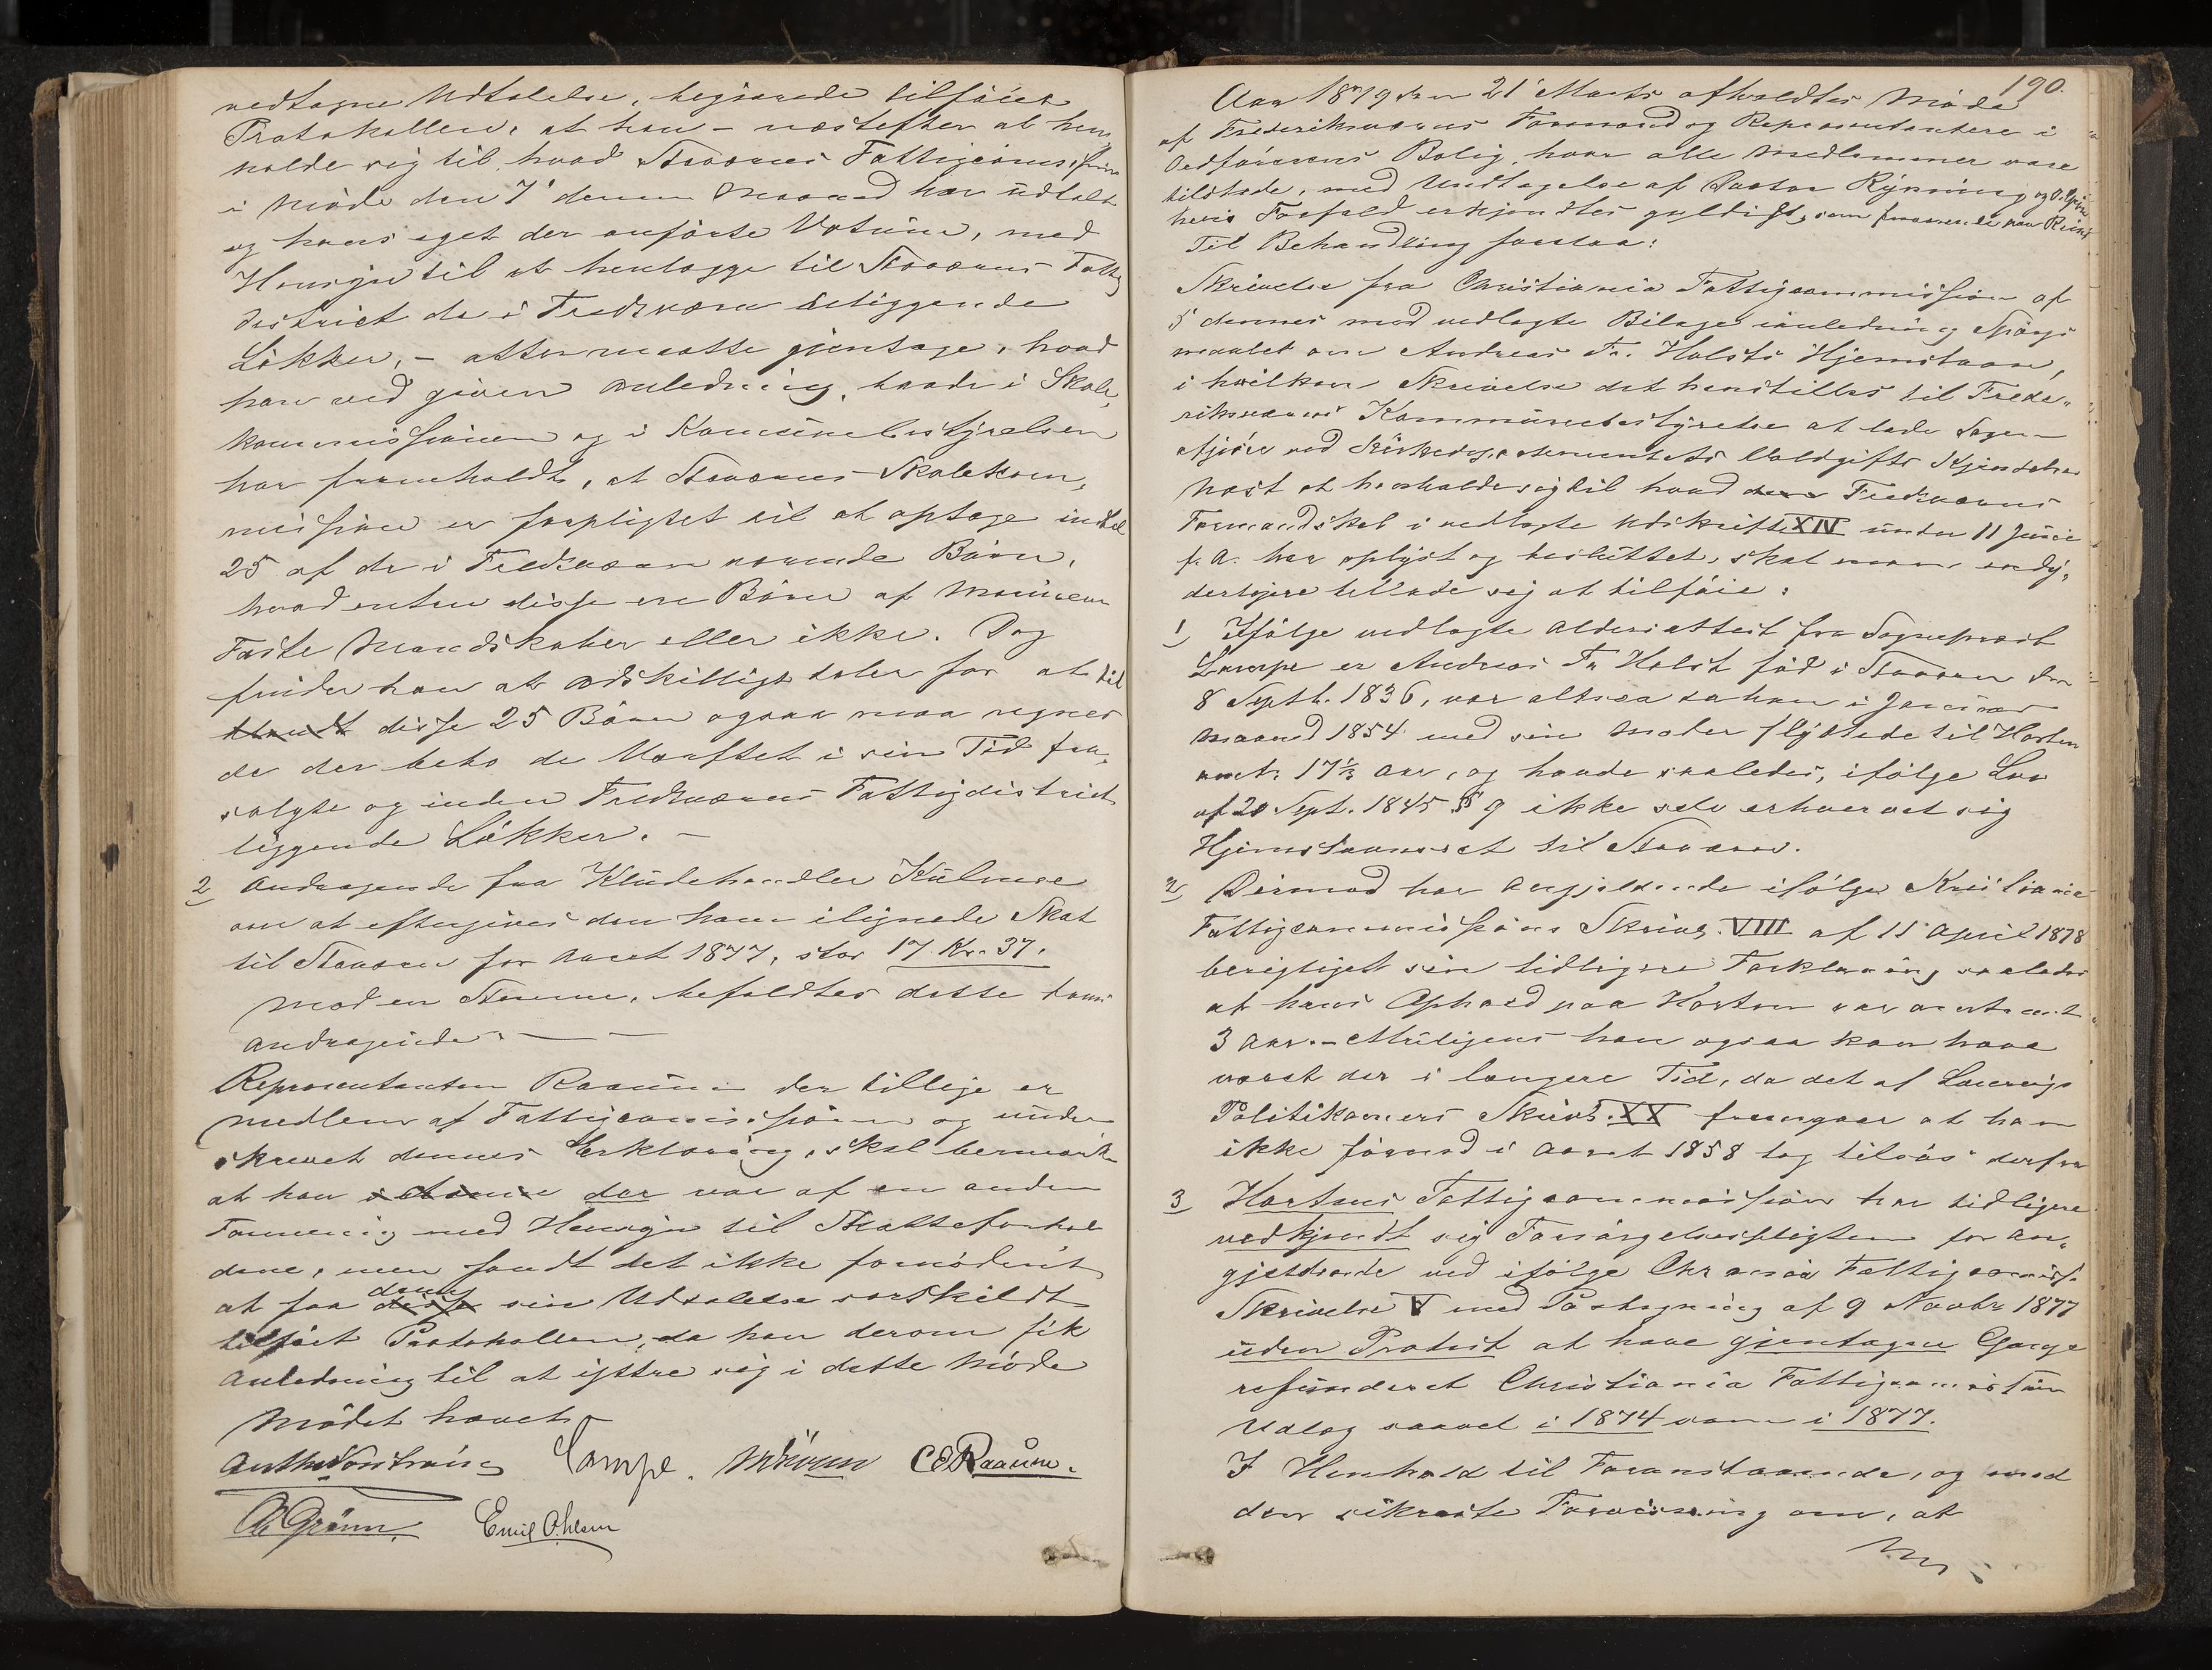 vedtagne Udtalelse, begjærede tilføiet
Protokollen, at han – næstefter at hen
holde sig til hvad Staværns Fattigcomission
i Møde den 7de denne Maaned har udtalt
og hans eget der anførte Votum, med
Hensyn til at henlægge til Staværns Fattig
district de i Fredksværn beliggende
Løkker, – atter maatte gjentage, hvad
han ved given Anledning, baade i Skole,
kommissionen og i Kommunebestyrelsen
har fremholdt, at Staværns Skolekom,
mission er forpligtet til at optage indtil
25 af de i Fredksværn værende Børn,
hvad enten disse ere Børn af Marinens
Faste Mandskaber eller ikke. Dog
finder han at adskilligt taler for at til
disse 25 Børn ogsaa maa regnes
de der bebo de Værftet i sin Tid fra,
solgte og inden Fredksværns Fattigdistrict
liggende Løkker. –
2 Andragende fra Kludehandler Kulmse
om at eftergives den ham ilignede Skat
til Staværn for Aaret 1877, stor 17 Kr. 37.
Mod en Stemme, befoldtes dette
Andragende. — —
Repræsentanten Raaum der tillige er
Medlem af Fattigcomissionen og under
skrevet dennes Erklæring, skal bemærke
at han der var af en anden
Formening med Hensyn til Skatteforhol
dene, men fandt det ikke fornødent
at faa denne sin Udtalelse særskildt
tilført Protokollen, da han derom fik
Anledning til at yttre sig i dette Møde
Mødet hævet
Lampe. CERaaum.
Grønn. Emil Ohlsen
190.
Aar 1879 den 21 Marts afholdtes Møde
af Frederiksværns Formænd og Repræsentantere i
Ordførerens Bolig, hvor alle Medlemmer vare
tilstede, med Undtagelse af Pastor Rynning og
hvis Forfald erkjendtes gyldigt, som fraværende paa Reise
Til Behandling forelaa:
Skrivelse fra Christiania Fattigcommission af
5 dennes med vedlagte Bilage i anledning Spørgs
maalet om Andreas Fr. Holsts Hjemstavn,
i hvilken Skrivelse det henstilles til Frede„
riksværns Kommunebestyrelse at lade Sagen
afgjøre ved Kirkedepartementets Voldgifts Kjendelse
Næst at henholde sig til hvad Fredksværns
Formandskab i vedlagte Udskrift XIV under 11 Juni
f. A. har oplyst og besluttet, skal man endy,
derligere tillade sig at tilføie:
1, Ifølge vedlagte Aldersattest fra Sognepræst
Lampe er Andreas Fr Holst fød i Staværn den
8 Septb. 1836, var altsaa da han i Januar
Maaned 1854 med sin Moder flyttede til Horten
omtr. 17½ Aar, og havde saaledes, ifølge Lov
af 20 Sept. 1845 § 9 ikke selv erhvervet sig
Hjemstavnsret til Staværn.
2, Dernæst har Angjældende ifølge Kristiania
Fattigcommissions Skriv. VIII af 15 April 1878
berigtiget sin tidligere Forklaring saaledes
at hans Ophold paa Horten var omtrent
3 Aar. – Muligens han ogsaa kan have
været der i længere Tid, da det af Laurvigs
Politikamers Skriv. XX fremgaar at han
ikke førend i Aaret 1858 tog tilsøs derfra
3 Hortens Fattigcommission har tidligere
vedkjendt sig Forsørgelsespligten for An„
gjældende ved ifølge Chrania Fattigcomiss.
Skrivelse V med Paategning af 9 Novbr 1877
uden Protest at have gjentagne Gange
refunderet Christiania Fattigcomission
Udlæg saavel i 1874 som i 1877.
I Henhold til Foranstaaende, og med
den sikreste Forvisning om, at